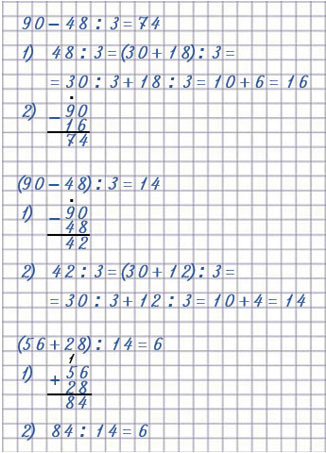 90 - 48 : 3 = 74
1) 48 : 3 = (30 + 18) : 3 =
= 30 : 3 + 18 : 3 = 10 + 6 = 16
2) - 90
16
74
(90 - 48) : 3 = 14
1) - 90
48
42
2) 42 : 3 = (30 + 12) : 3 =
= 30 : 3 + 12 : 3 = 10 + 4 = 14
(56 + 28) : 14 = 6
1
1) + 56
28
84
2) 84 : 14 = 6